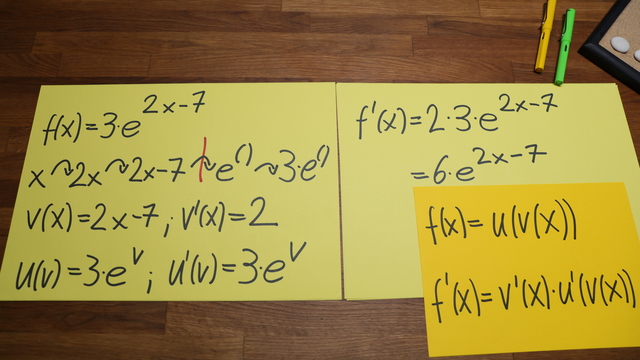 f(x)=3·e^(2x-7)
x ↷ 2x ↷ 2x-7 ↷ e^() ↷ 3·e^()
v(x)=2x-7; v'(x)=2
u(v)=3·e^v; u'(v)=3·e^v
f'(x)=2·3·e^(2x-7)
=6·e^(2x-7)
f(x)=u(v(x))
f'(x)=v'(x)·u'(v(x))